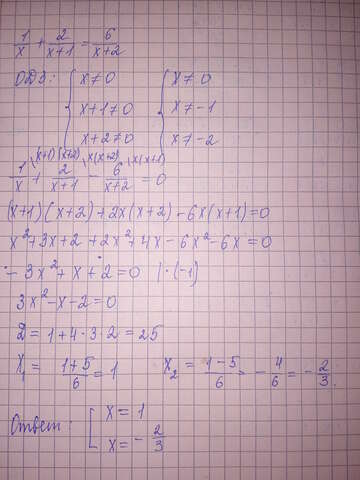 1/x + 2/(x+1) = 6/(x+2)
ОДЗ: { x≠0 { x≠0
x+1≠0 x≠-1
x+2≠0 x≠-2
1/x \(x+1)(x+2) + 2/(x+1) \x(x+2) - 6/(x+2) \x(x+1) = 0
(x+1)(x+2)+2x(x+2)-6x(x+1)=0
x²+3x+2+2x²+4x-6x²-6x=0
-3x²+x+2=0 |·(-1)
3x²-x-2=0
D=1+4·3·2=25
x₁ = (1+5)/6 = 1 x₂ = (1-5)/6 = -4/6 = -2/3.
Ответ: [ x=1
x=-2/3